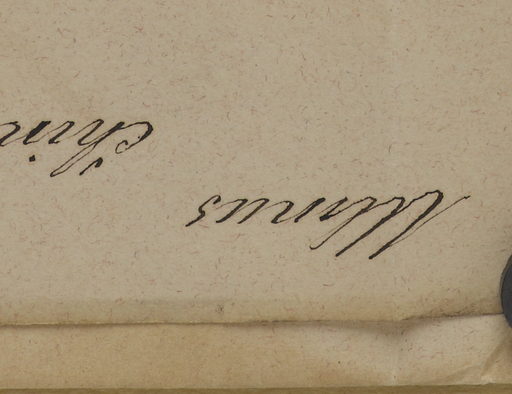 Ulmus
chin